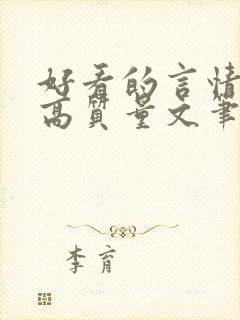 好看的言情
高质量文笔
李育